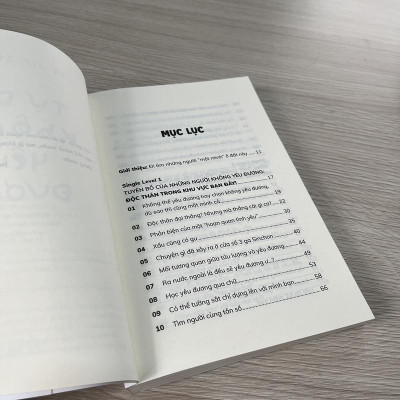 MỤC LỤC
Giới thiệu: Đi tìm những người "một mình" ở đất này 11
Single Level 1
TUYÊN BỐ CỦA NHỮNG NGƯỜI KHÔNG YÊU ĐƯƠNG,
ĐỘC THÂN TRONG KHU VỰC BAN ĐẦU
01 Không thể yêu đương hay không yêu đương, 17
dù sao thì cũng một mình cả
02 Độc thân đại thắng! Nhưng mà thắng cái gì cơ? 19
03 Phản biện của một "hoạn quan tình yêu" 30
04 Xấu cũng có gu 37
05 Chuyện gì đã xảy ra ở cửa số 3 ga Sinchon 40
06 Mối tương quan giữa tửu lượng và yêu đương 44
07 Ra nước ngoài là đều sẽ yêu đương ư? 49
08 Học yêu đương qua chữ 53
09 Có thể tường sắt chỉ dựng lên với mình bạn 58
10 Tìm người cùng tần số 66